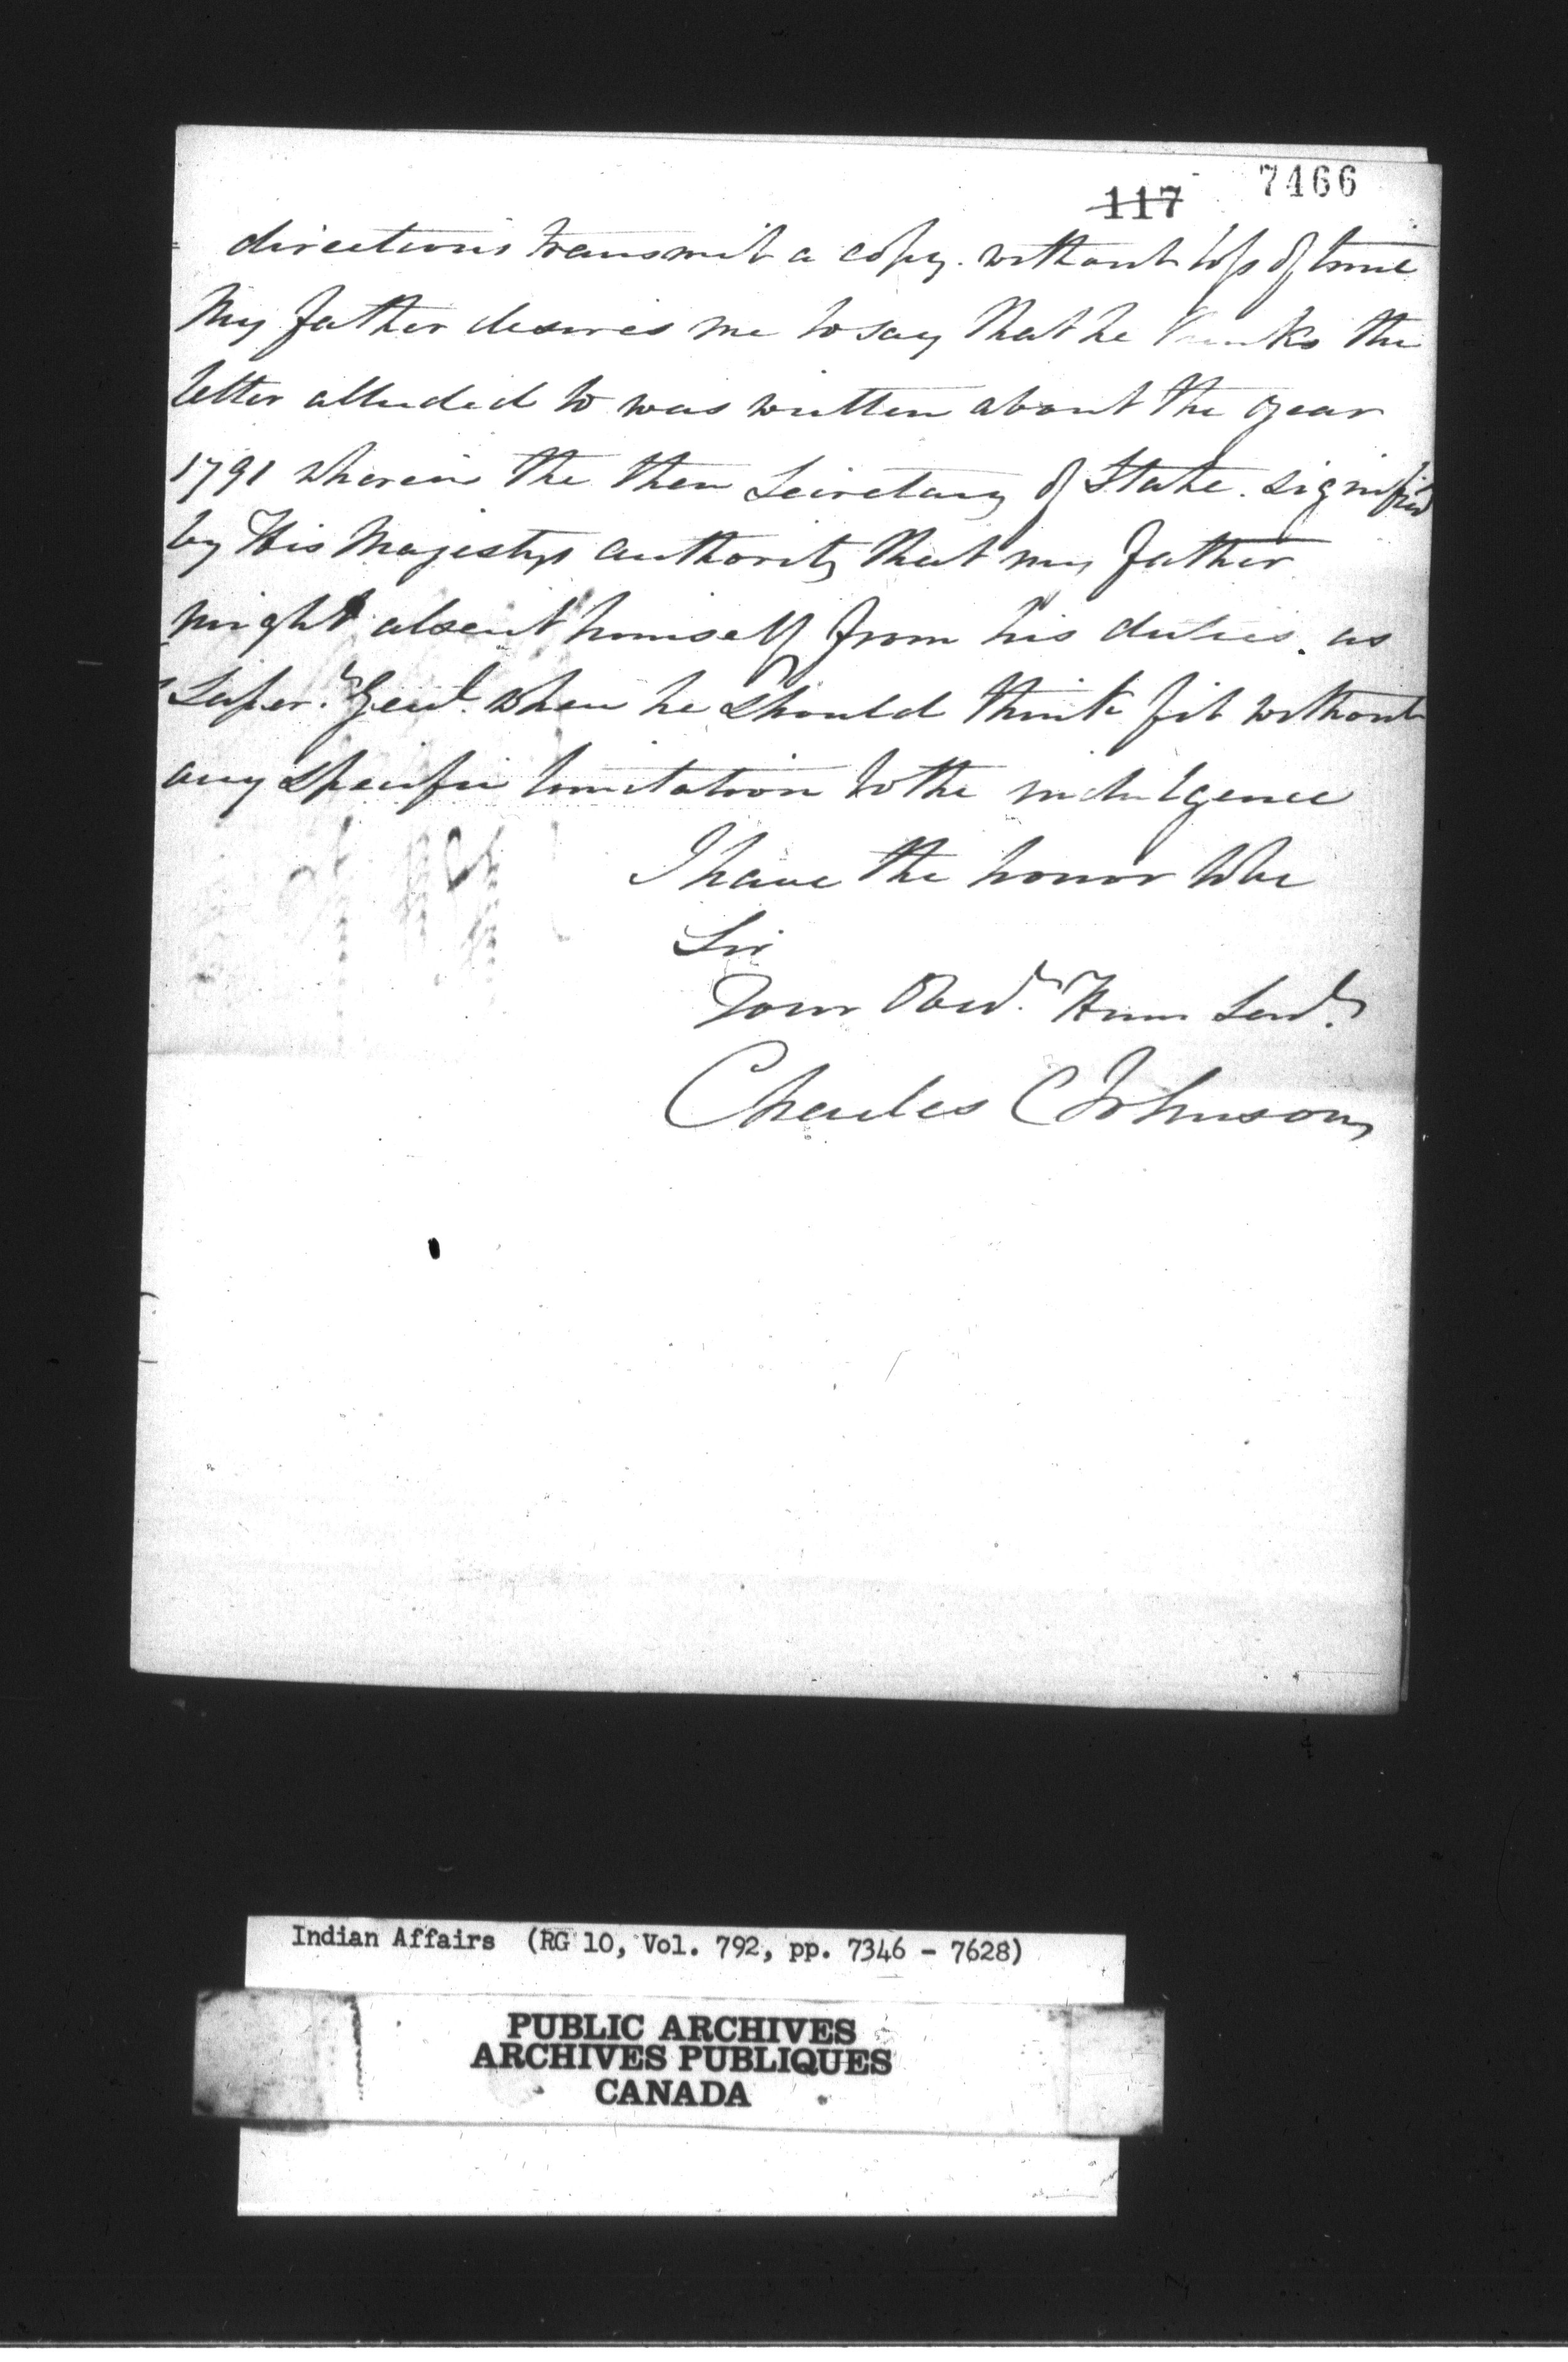 117 7466
directions transmit a copy. without loss of time
My father desires me to say that he thinks the
letter alluded to was written about the year
1791 wherein the then Secretary of State. signified
by His Majestys authority that my father
might absent himself from his duties. as
Super.t Genl. when he should think fit without
any specific limitation to the indulgence
I have the honor to be
Sir
Your Obed.t Hum Servt.
Charles C Johnson
Indian Affairs (RG 10, Vol. 792, pp. 7346 - 7628)
PUBLIC ARCHIVES
ARCHIVES PUBLIQUES
CANADA